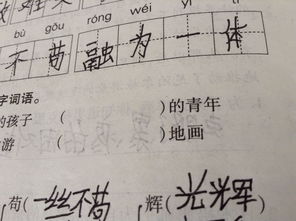 bù gǒu róng wéi yī tǐ
不苟 融为一体
字词语。
的孩子 ( )的青年
游 ( )地画
苟(一丝不苟 辉(光辉